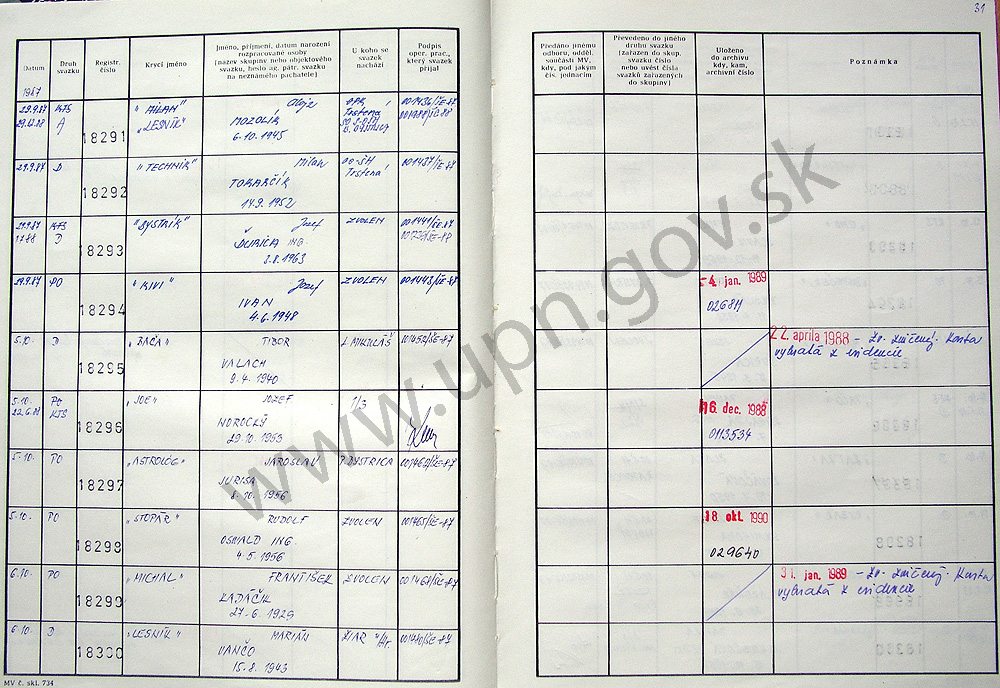 31
Datum
Druh
svazku
Registr.
číslo
Krycí jméno
Jméno, příjmení, datum narození
rozpracované osoby
(název skupiny nebo objektového
svazku, heslo ag. pátr. svazku
na neznámého pachatele)
U koho se
svazek
nachází
Podpis
oper. prac.,
který svazek
přijal
Předáno jinému
odboru, odděl.
součásti MV,
kdy, pod jakým
čís. jednacím
Převedeno do jiného
druhu svazku
(zařazen do skup.
svazku číslo
nebo uvést čísla
svazků zařazených
do skupiny)
Uloženo
do archivu
kdy, kam,
archivní číslo
Poznámka
1987
29.9.87 KTS
29.12.88 A
18291
"MILAN"
"LESNÍK"
Alojz
MOZOLÍK
6.10.1945
Trstená
29.9.87 D
18292
"TECHNIK"
Milan
TOKARČÍK
14.9.1952
OO-ŠH
Trstená
001437/ŠE-87
29.9.87 KTS
D
18293
"BYSTRÍK"
Jozef
ĎURICA ING.
2.8.1963
ZVOLEN
001441/ŠE-87
29.9.87 PO
18294
"KIVI"
Jozef
IVAN
4.6.1948
ZVOLEN
001443/ŠE-87
-4. jan. 1989
026811
5.10. D
18295
"ZAČA"
TIBOR
VALACH
9.4.1940
L. MIKULÁŠ
001452/ŠE-87
22. apríla 1988 - Zv. zničený. Karta
vybratá z evidencie
5.10. PO
22.6.88 KTS
18296
"JOE"
JOZEF
NOROCKÝ
29.10.1955
1/3
16. dec. 1988
0113534
5.10. PO
18297
"ASTROLÓG"
JAROSLAV
JURISA
8.10.1956
P. BYSTRICA
001462/ŠE-87
5.10. PO
18298
"STOPÁR"
RUDOLF
OSWALD ING.
4.5.1956
ZVOLEN
001465/ŠE-87
18. okt. 1990
029640
6.10. PO
18299
"MICHAL"
FRANTIŠEK
LADÁČIK
27.6.1929
ZVOLEN
001468/ŠE-87
31. jan. 1989 - Zv. zničený. Karta
vybratá z evidencie
6.10. D
18300
"LESNÍK"
MARIÁN
VANČO
15.8.1943
ŽIAR n/Hr.
001470/ŠE-87
MV č. skl. 734
www.upn.gov.sk